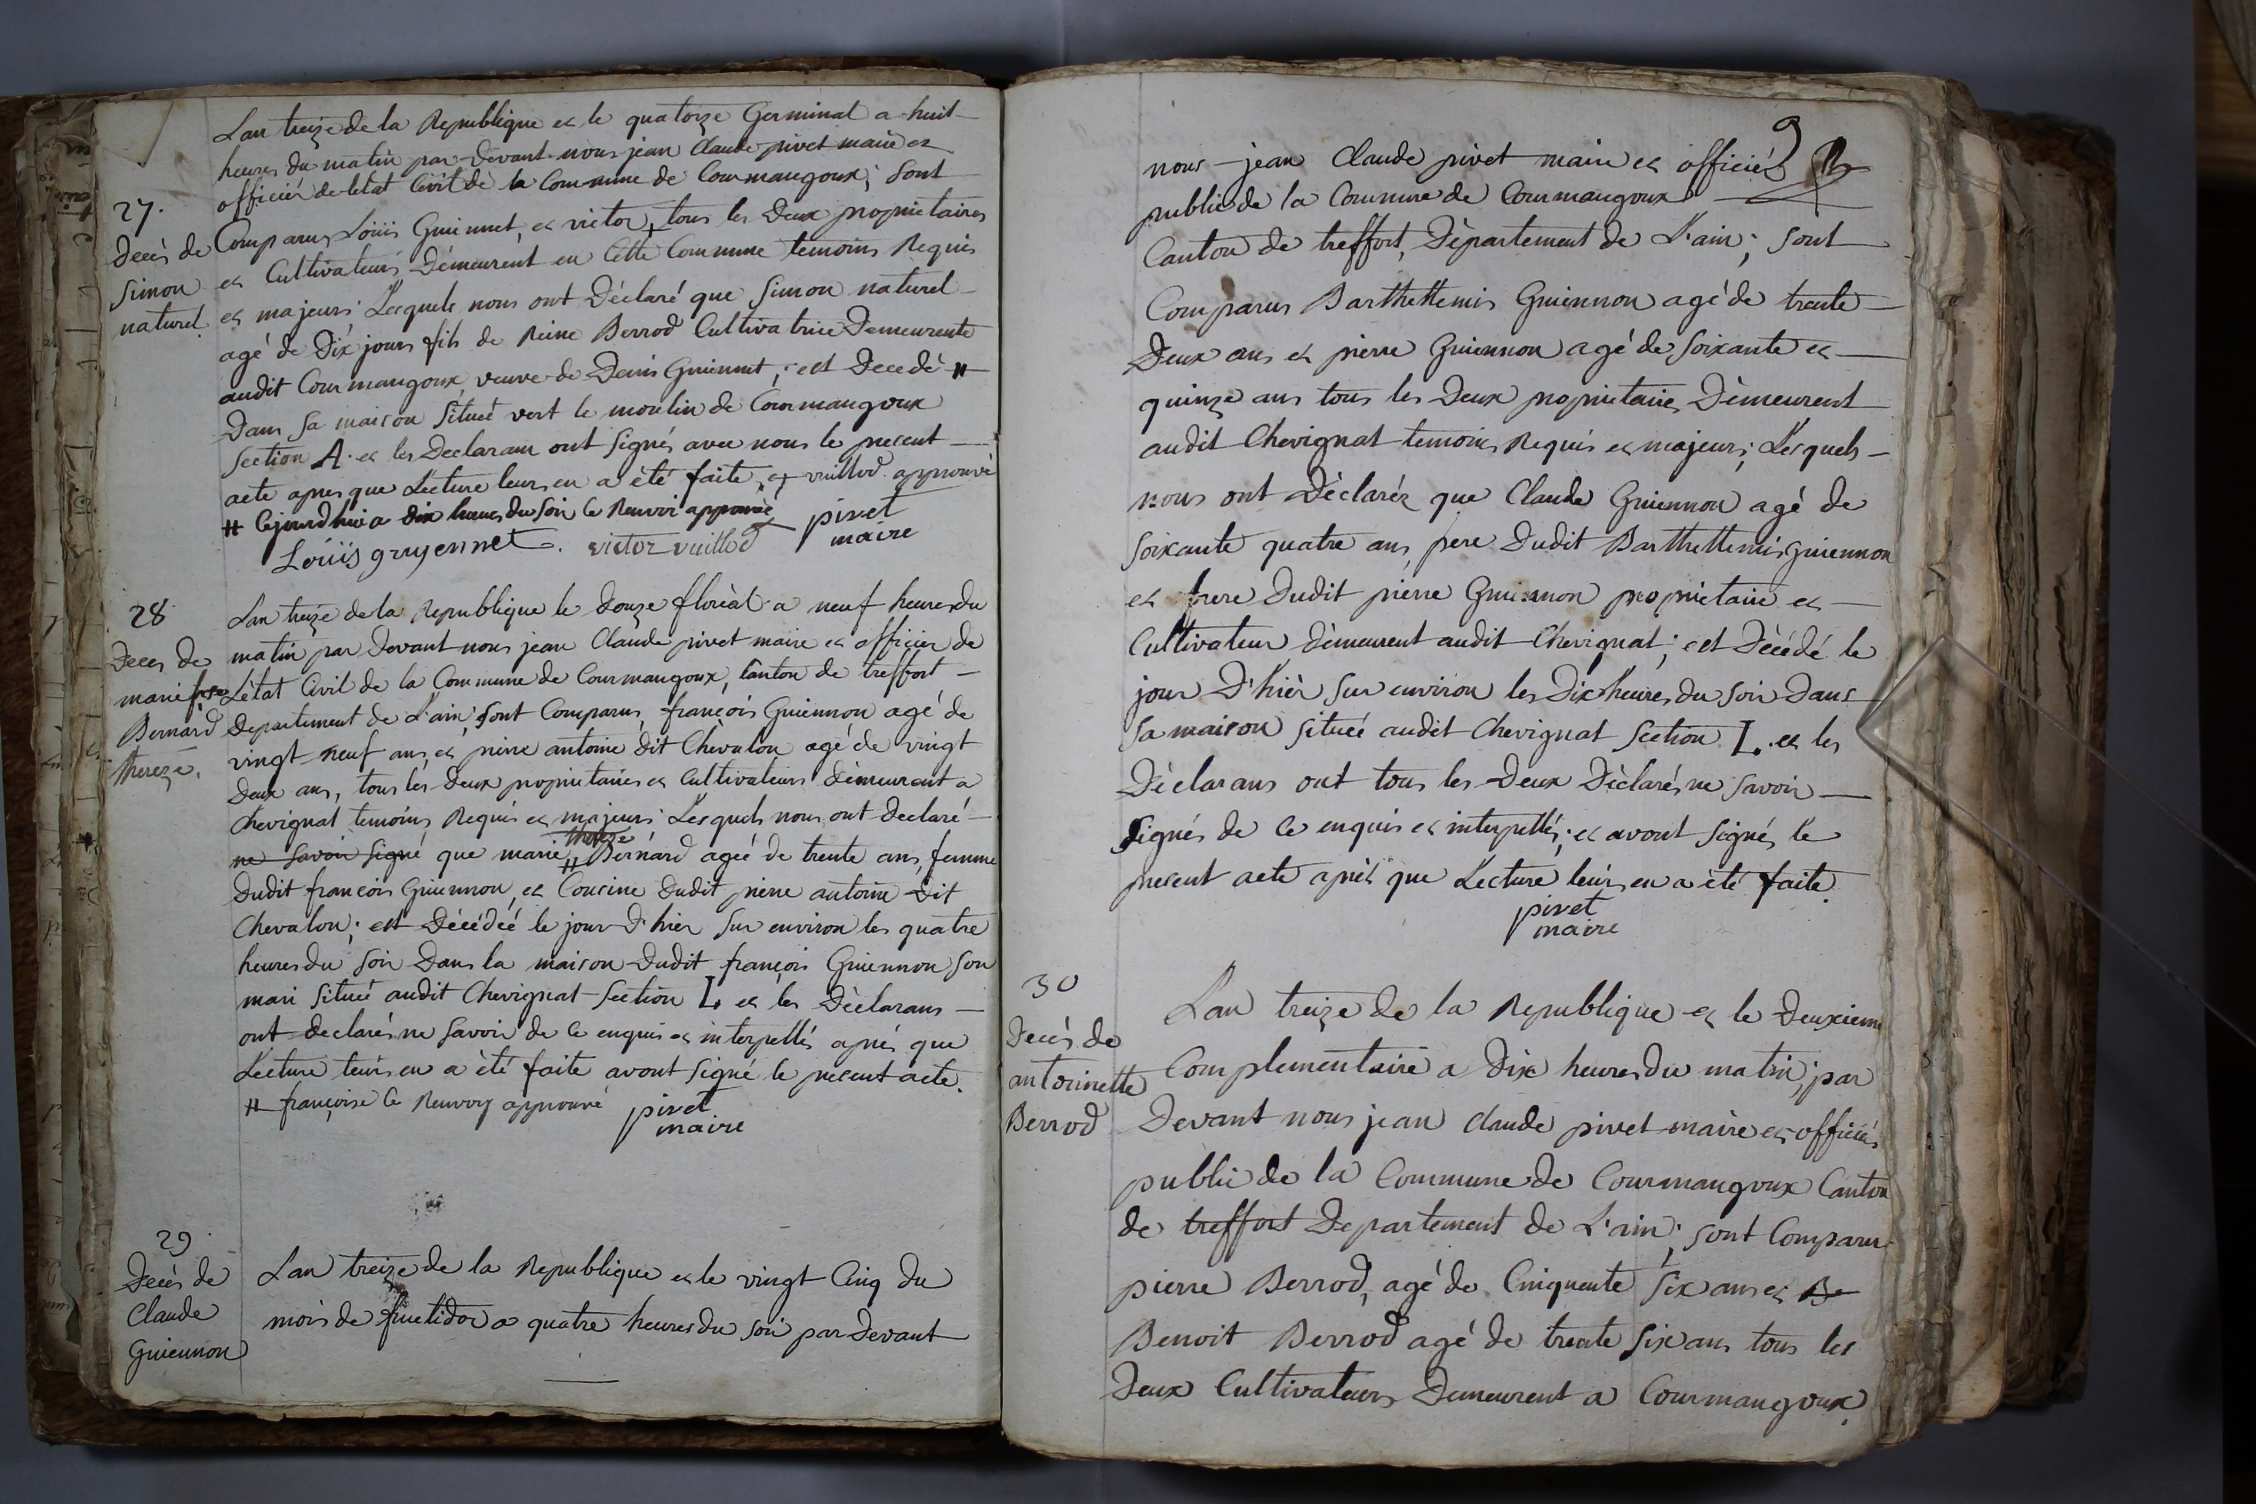 Lan treize de la Republique et le quatorze Germinal a huit
heures du matin par devant nous jean Claude pivet maire et
officier de letat Civil de la Commune de Courmangoux; sont
27.
Decès de
Simon
naturel
Comparus Loüis Guiennet, et victor, tous les deux proprietaires
et Cultivateurs Demeurent en Cette Commune temoins Requis
et majeurs Lesquels nous ont Déclaré que Simon naturel
agé de Dix jours fils de Reine Berrod Cultivatrice Demeurente
audit Courmangoux veuve de Denis Guiennet, est Decedé #
Dans sa maison situeé vert le moulin de Courmangoux
section A. et les Declarans ont signés avec nous le present
acte apres que Lecture leurs en a été faite, et vuillod approuvé
# Cejourdhui a dix heures du soir Ce Renvoi approuvé
Loüis gruyennet. victor vuillod pivet
maire
28
Deces de
marie fse
Bernard
thereze.
Lan treize de la Republique le douze floréal a neuf heures du
matin par Devant nous jean Claude pivet maire et officier de
Létat Civil de la Commune de Courmangoux, canton de treffort
Departement de L'ain; sont Comparus, françois Guiennon agé de
vingt neuf ans, et pierre antoine dit Chevalon agé de vingt
deux ans, tous les deux proprietaires et Cultivateurs démeurant a
Chevignat temoins Requis et majeurs Lesquels nous ont declaré
ne savoir signé que marie # thereze Bernard ageé de trente ans, femme
Dudit françois Guiennon, et Cousine dudit pierre antoine dit
Chevalon; est Décédeé le jour D'hier sur environ les quatre
heures du soir Dans la maison dudit françois Guiennon son
mari situeé audit Chevignat Section L. et les Déclarans
ont declarés ne savoir de Ce enquis et interpellés aprés que
Lecture leurs en a été faite avont signé le present acte.
# françoise Ce Renvoy approuvé pivet
maire
29.
Decès de
Claude
Guiennon
Lan treize de la Republique et le vingt Cinq du
mois de fructidor a quatre heures du soir par devant
9
nous jean Claude pivet maire et officiér
public de la Commune de Courmangoux
Canton de treffort, Département de L'ain; sont
Comparus Barthellemis Guiennon agé de trente
Deux ans et pierre Guiennon agé de soixante et
quinze ans tous les Deux proprietaires Démeurent
audit Chevignat temoins Requis et majeurs; Lesquels
nous ont Déclarés que Claude Guiennon agé de
soixante quatre ans, pere Dudit Barthellemis Guiennon
et frere Dudit pierre Guiennon proprietaire et
Cultivateur démeurent audit Chevignat; est Décédé le
jour D'hièr sur environ les Dix heures du soir Dans
sa maison situeé audit Chevignat Section L. et les
Déclarans ont tous les Deux Déclarés ne savoir
signés de Ce enquis et interpellés; et avont signés le
present acte aprés que Lecture leurs en a été faite.
pivet
maire
30
Decès de
antoinette
Berrod
Lan treize de la Republique et le Deuxieme
Complementaire a Dix heures du matin; par
Devant nous jean Claude pivet maire et officiér
public de la Commune de Courmangoux Canton
de treffort Departement de L'ain; sont Comparus
pierre Berrod, agé de Cinquente six ans et Be
Benoit Berrod agé de trente six ans tous les
Deux Cultivateurs Demeurent a Courmangoux